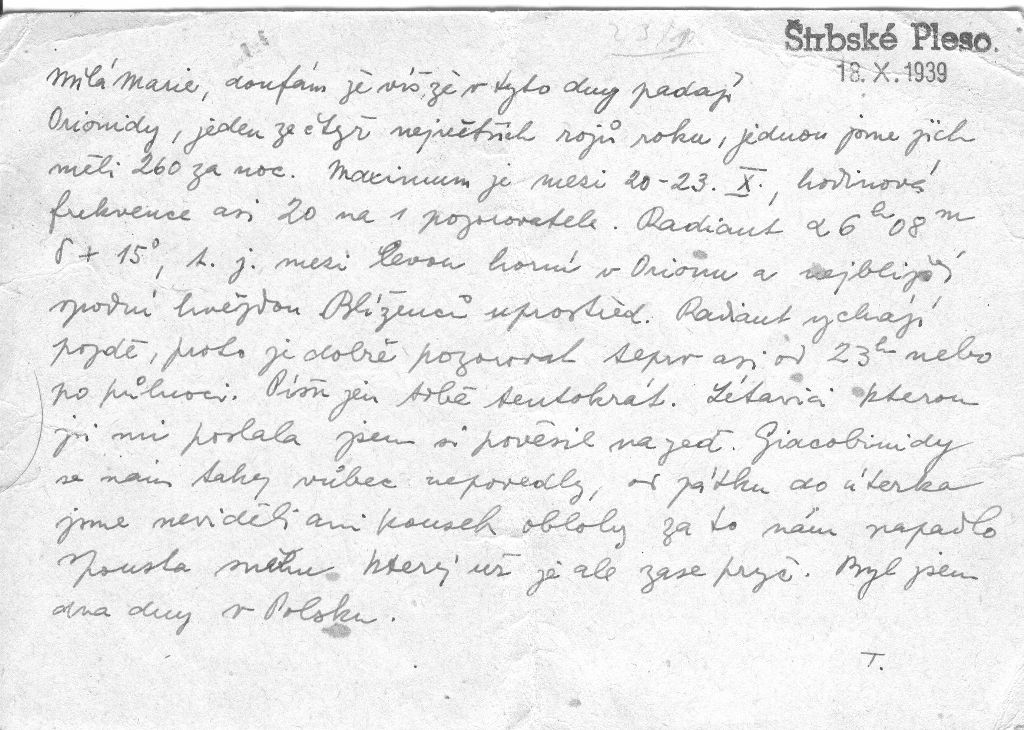 Štrbské Pleso.
18. X. 1939
Milá Marie, doufám že víš, že v tyto dny padají
Orionidy, jeden ze čtyř největších rojů roku, jednou jsme jich
měli 260 za noc. Maximum je mezi 20-23. X., hodinová
frekvence asi 20 na 1 pozorovatele. Radiant α 6h 08m
δ + 15°, t. j. mezi levou horní v Orionu a nejbližší
spodní hvězdou Blíženců uprostřed. Radiant vychází
pozdě, proto je dobře pozorovat teprv asi od 23h nebo
po půlnoci. Píši jen tobě tentokrát. Létavici kterou
jsi mi poslala jsem si pověsil na zeď. Giacobinidy
se nám taky vůbec nepovedly, od pátku do úterka
jsme neviděli ani kousek oblohy za to nám napadlo
spousta sněhu který už je ale zase pryč. Byl jsem
dva dny v Polsku.
T.